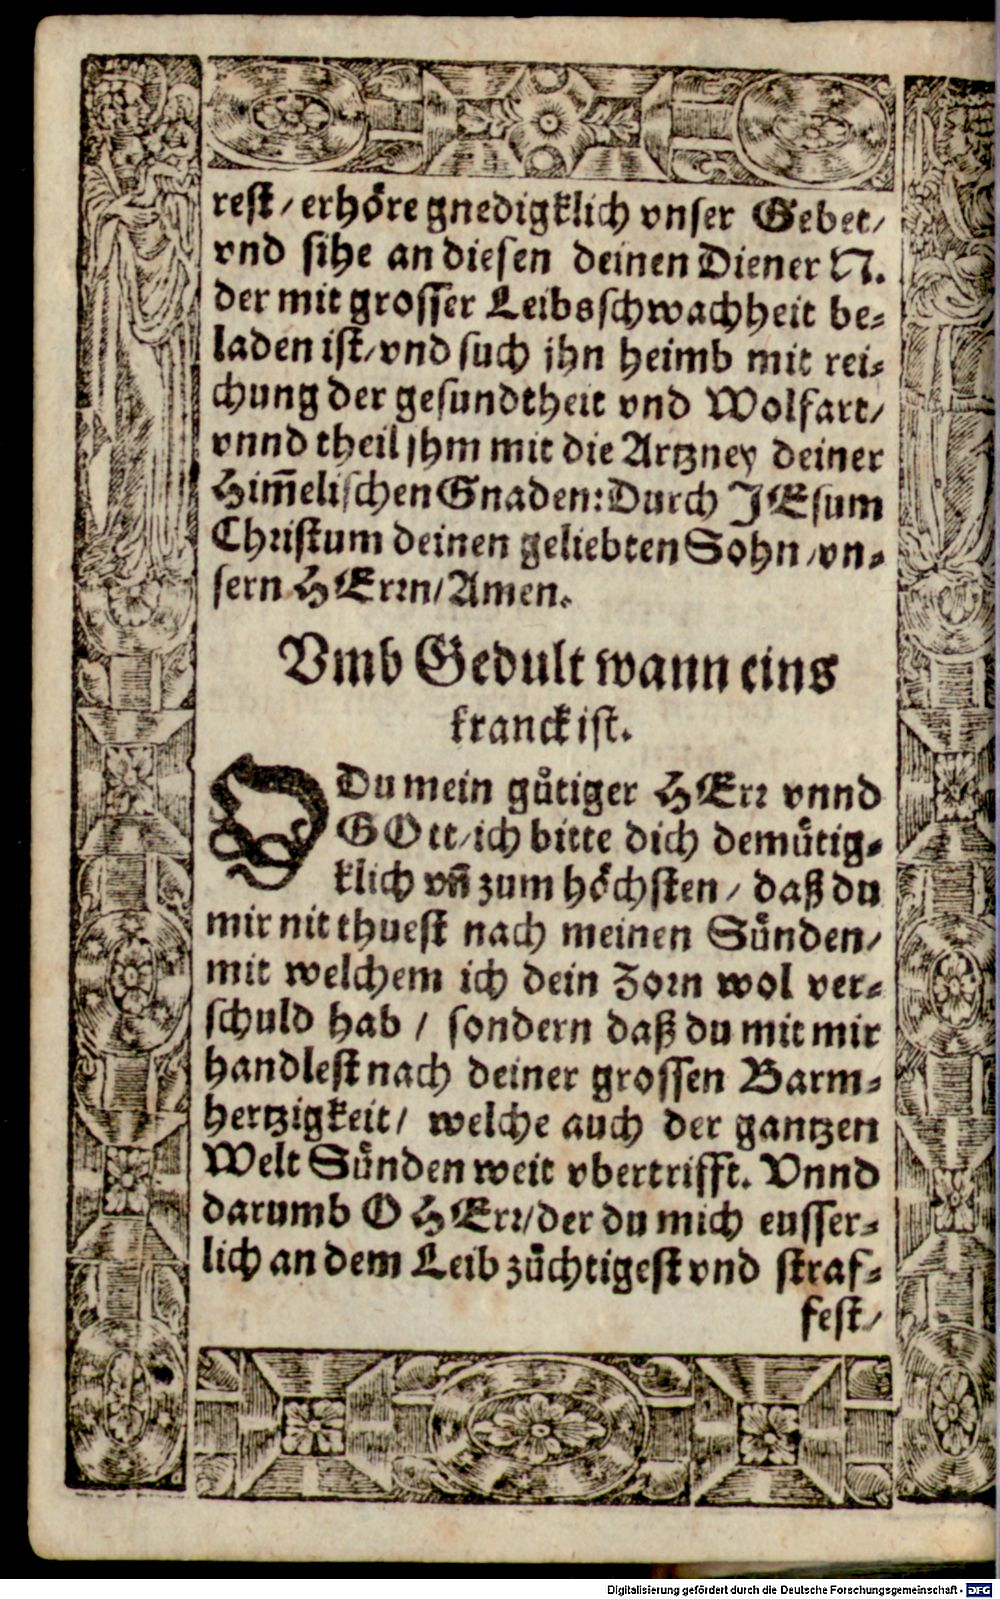 rest / erhöre gnedigklich vnser Gebet /
vnd sihe an diesen deinen Diener N.
der mit grosser Leibsschwachheit be-
laden ist / vnd such jhn heimb mit rei-
chung der gesundtheit vnd Wolfart /
vnnd theil jhm mit die Artzney deiner
Him̃elischen Gnaden: Durch JEsum
Christum deinen geliebten Sohn / vn-
sern HErrn / Amen.
Vmb Gedult wann eins
kranck ist.
O Du mein gůtiger HErr vnnd
GOtt / ich bitte dich demůtig-
klich vñ zum höchsten / daß du
mir nit thuest nach meinen Sůnden /
mit welchem ich dein Zorn wol ver-
schuld hab / sondern daß du mit mir
handlest nach deiner grossen Barm-
hertzigkeit / welche auch der gantzen
Welt Sůnden weit vbertrifft. Vnnd
darumb O HErr / der du mich eusser-
lich an dem Leib zůchtigest vnd straf-
fest /
Digitalisierung gefördert durch die Deutsche Forschungsgemeinschaft - DFG